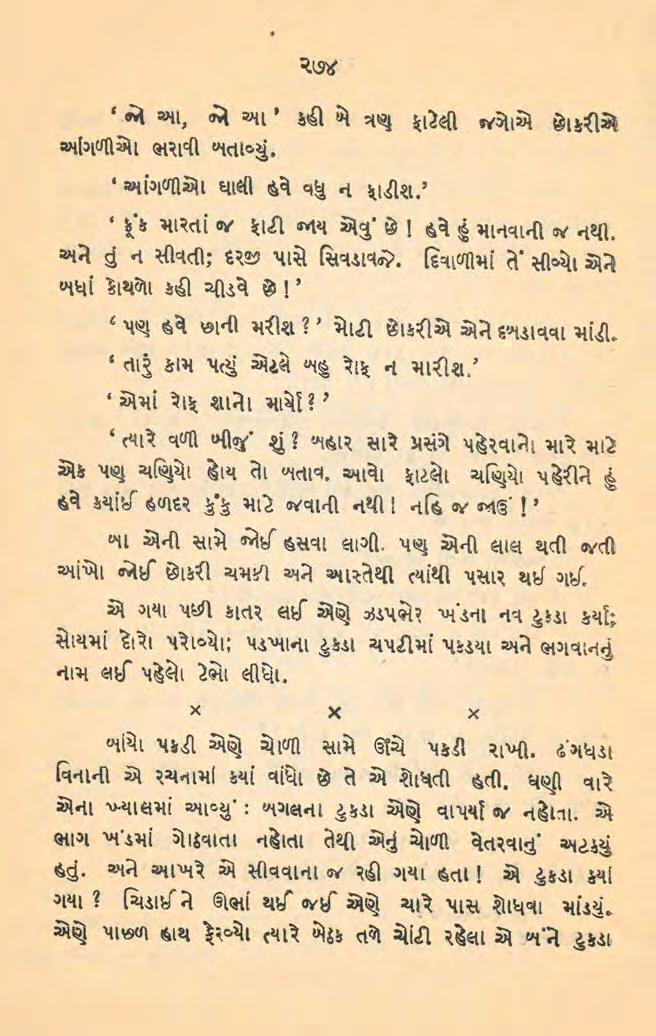 ૨૭૪
‘ જો આ, જો આ ’ કહી બે ત્રણ ફાટેલી જગોએ છોકરીએ
આંગળીઓ ભરાવી બતાવ્યું.
‘ આંગળીઓ ઘાલી હવે વધુ ન ફાડીશ.’
‘ ફૂંક મારતાં જ ફાટી જાય એવું છે ! હવે હું માનવાની જ નથી.
અને તું ન સીવતી; દરજી પાસે સિવડાવજે. દિવાળીમાં તેં સીવ્યો એને
બધાં કોથળો કહી ચીડવે છે ! ’
‘ પણ હવે છાની મરીશ ? ’ મોટી છોકરીએ એને દબડાવવા માંડી.
‘ તારું કામ પત્યું એટલે બહુ રોફ ન મારીશ.’
‘ એમાં રોફ શાનો માર્યો ? ’
‘ ત્યારે વળી બીજું શું ? બહાર સારે પ્રસંગે પહેરવાનો મારે માટે
એક પણ ચણિયો હોય તો બતાવ. આવો ફાટલો ચણિયો પહેરીને હું
હવે કયાંઈ હળદર કુંકુ માટે જવાની નથી ! નહિ જ જાઉં ! ’
બા એની સામે જોઈ હસવા લાગી. પણ એની લાલ થતી જતી
આંખો જોઈ છોકરી ચમકી અને આસ્તેથી ત્યાંથી પસાર થઈ ગઈ.
એ ગયા પછી કાતર લઈ એણે ઝડપભેર ખંડના નવ ટુકડા કર્યા;
સોયમાં દોરો પરોવ્યો; પડખાના ટુકડા ચપટીમાં પકડયા અને ભગવાનનું
નામ લઈ પહેલો ટેભો લીધો.
× × ×
બાંયો પકડી એણે ચોળી સામે ઊંચે પકડી રાખી. ઢંગધડા
વિનાની એ રચનામાં કયાં વાંધો છે તે એ શોધતી હતી. ઘણી વારે
એના ખ્યાલમાં આવ્યું : બગલના ટુકડા એણે વાપર્યા જ નહોતા. એ
ભાગ ખંડમાં ગોઠવાતા નહોતા તેથી એનું ચોળી વેતરવાનું અટકયું
હતું. અને આખરે એ સીવવાના જ રહી ગયા હતા ! એ ટુકડા કયાં
ગયા ? ચિડાઈ ને ઊભાં થઈ જઈ એણે ચારે પાસ શોધવા માંડયું.
એણે પાછળ હાથ ફેરવ્યો ત્યારે બેઠક તળે ચોંટી રહેલા એ બંને ટુકડા